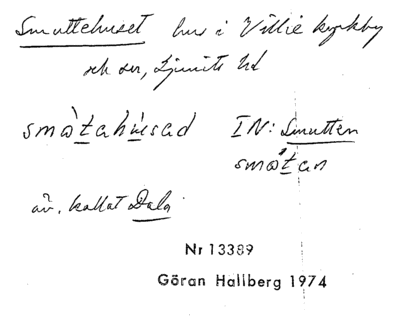 Smuttehuset hus i Villie kyrkby
och sn, Ljunits hd
smωtahusad IN: Smutten
smωtan
äv. kallat Dala
Nr 13389
Göran Hallberg 1974